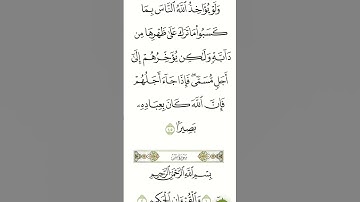 وَلَوْ يُؤَاخِذُ ٱللَّهُ ٱلنَّاسَ بِمَا
كَسَبُوا۟ مَا تَرَكَ عَلَىٰ ظَهْرِهَا مِن
دَآبَّةٍ وَلَٰكِن يُؤَخِّرُهُمْ إِلَىٰٓ
أَجَلٍ مُّسَمًّى ۖ فَإِذَا جَآءَ أَجَلُهُمْ
فَإِنَّ ٱللَّهَ كَانَ بِعِبَادِهِۦ
بَصِيرًۢا ٤٥
بِسْمِ ٱللَّهِ ٱلرَّحْمَٰنِ ٱلرَّحِيمِ
يسٓ ١ وَٱلْقُرْءَانِ ٱلْحَكِيمِ ٢